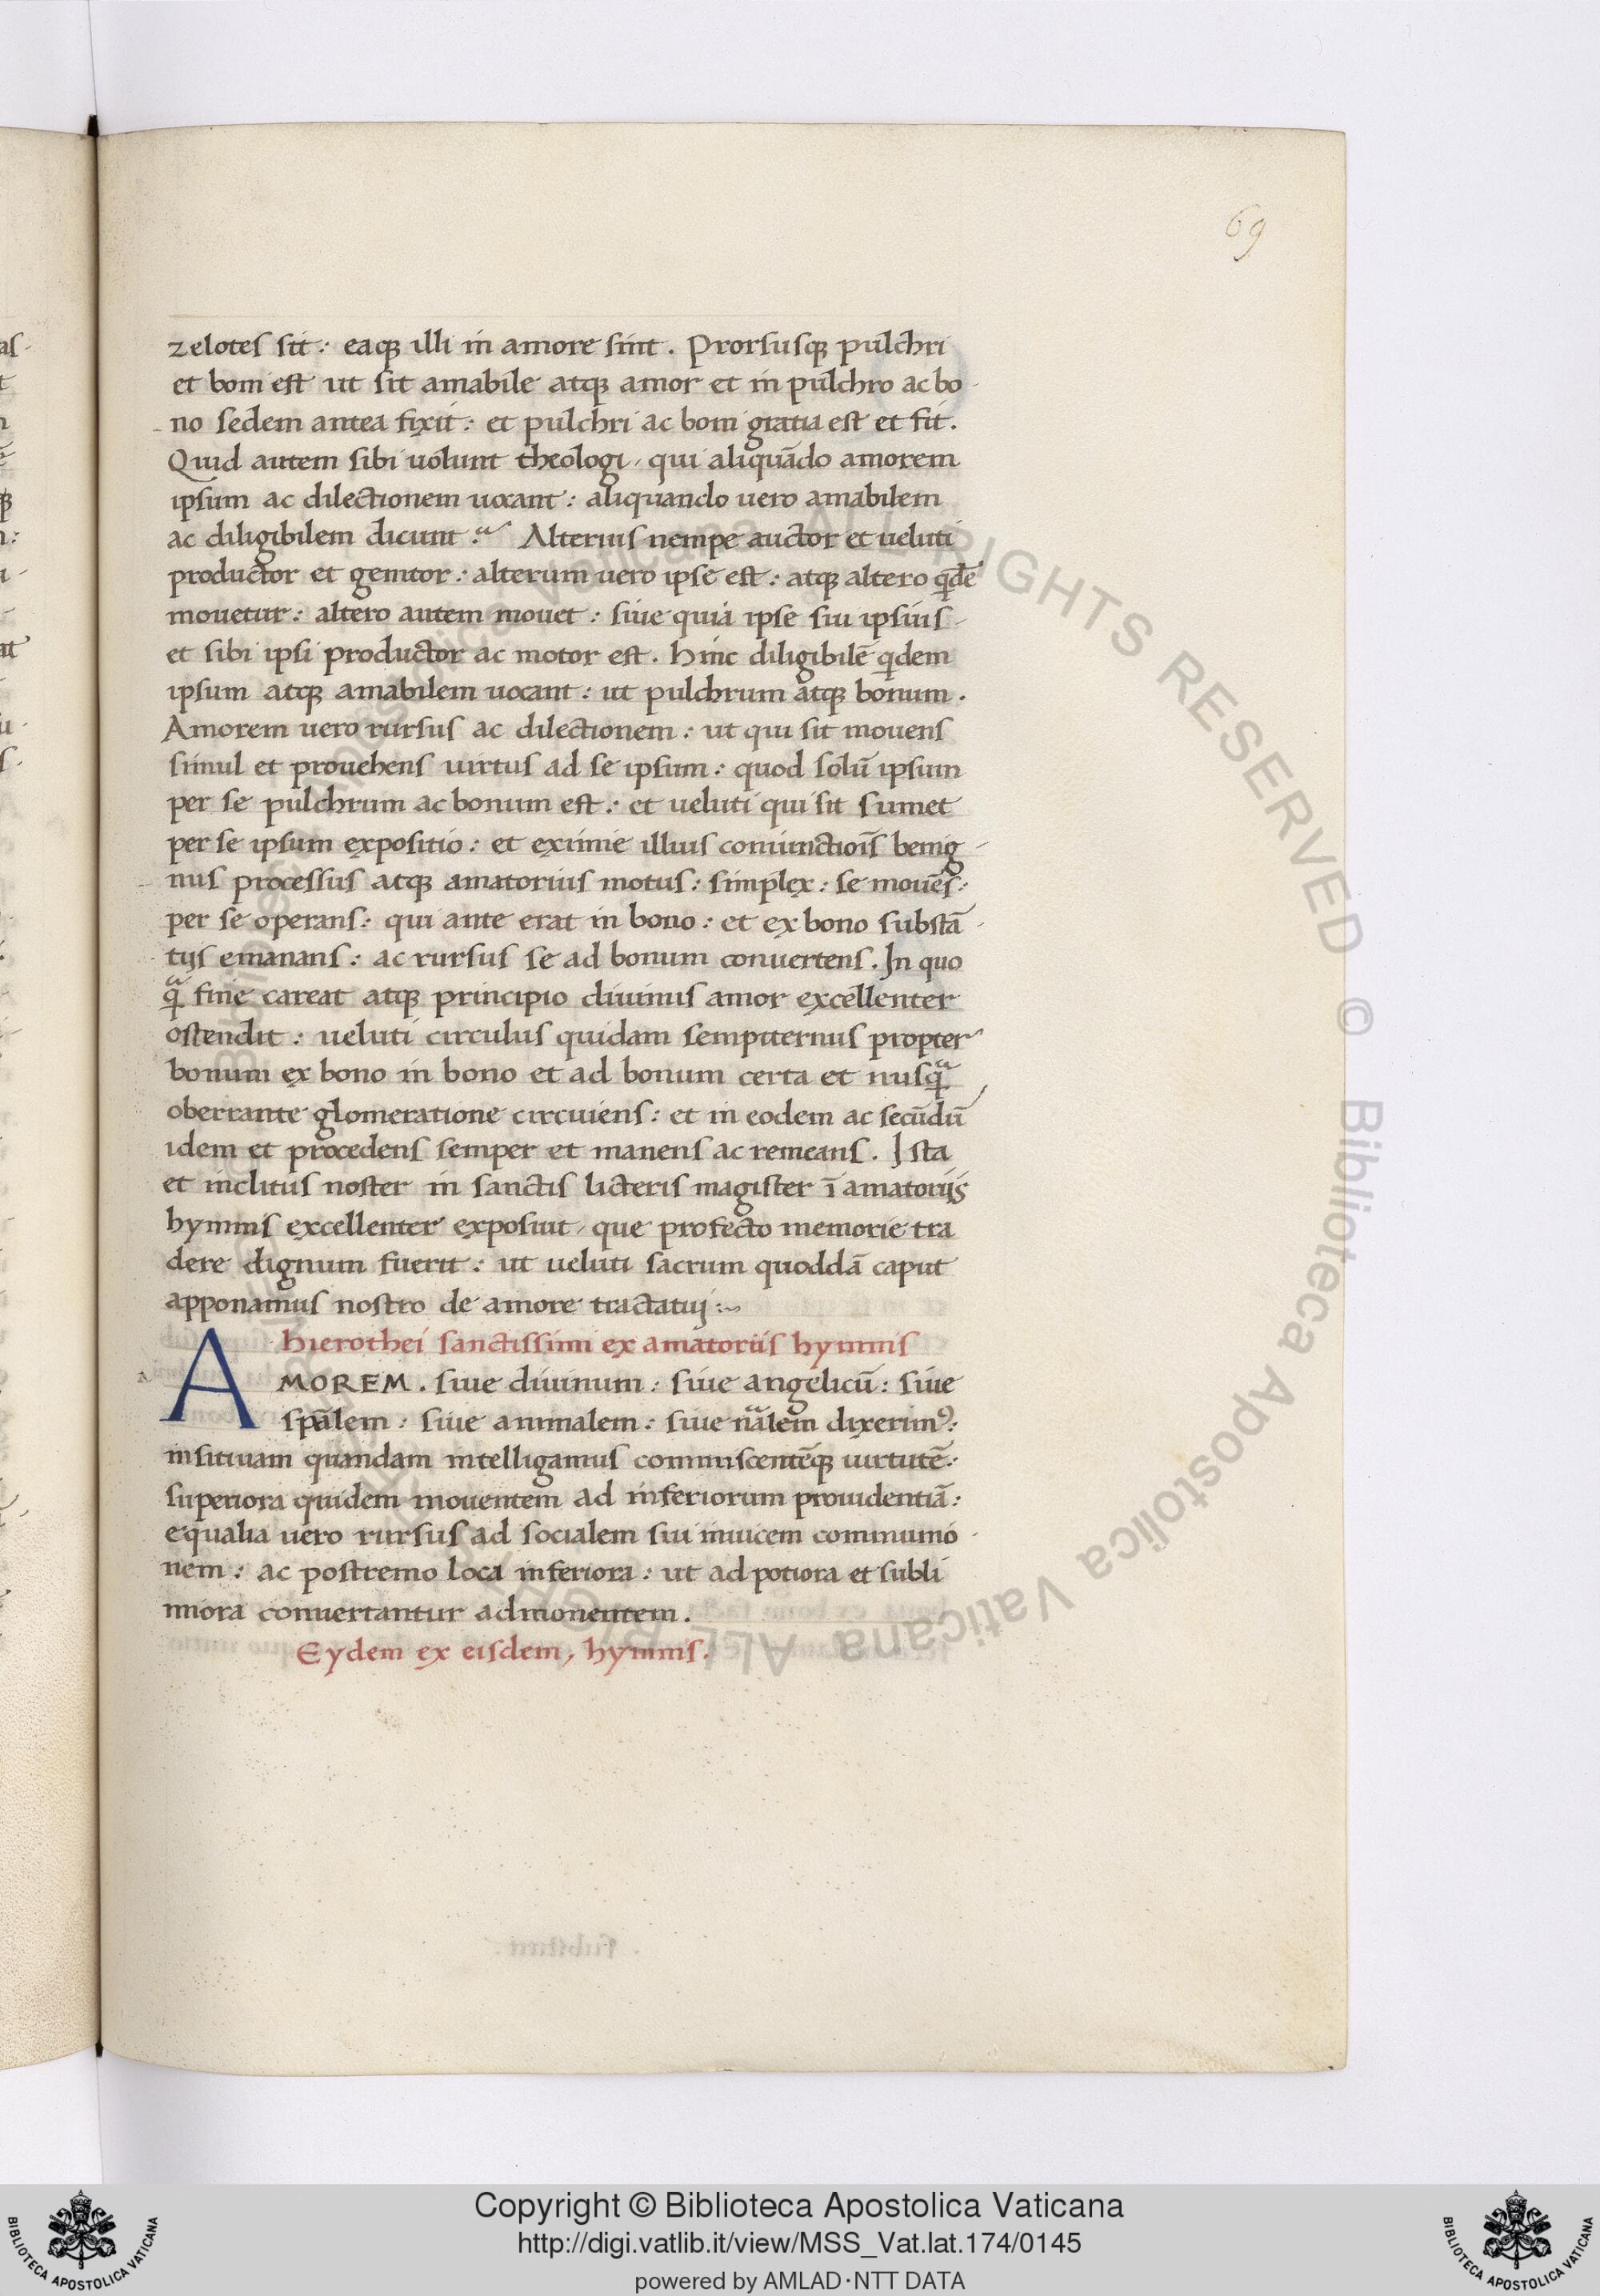 69
zelotes sit: eaq; illi in amore sint. Prorsusq; pulchri
et boni est ut sit amabile atq; amor et in pulchro ac bo-
no sedem antea fixit: et pulchri ac boni gratia est et fit.
Quid autem sibi uolunt theologi, qui aliquādo amorem
ipsum ac dilectionem uocant: aliquando uero amabilem
ac diligibilem dicunt? Alterius nempe auctor et ueluti
productor et genitor: alterum uero ipse est: atq; altero qdē
mouetur: altero autem mouet: siue quia ipse sui ipsius
et sibi ipsi productor ac motor est. hinc diligibilē qdem
ipsum atq; amabilem uocant: ut pulchrum atq; bonum.
Amorem uero rursus ac dilectionem: ut qui sit mouens
simul et prouehens uirtus ad se ipsum: quod solū ipsum
per se pulchrum ac bonum est: et ueluti qui sit suimet
per se ipsum expositio: et eximie illius coniunctiōis benig-
nus processus atq; amatorius motus: simplex: se mouēs:
per se operans: qui ante erat in bono: et ex bono substā-
tijs emanans: ac rursus se ad bonum conuertens. In quo
qᵃ fine careat atq; principio diuinus amor excellenter
ostendit: ueluti circulus quidam sempiternus propter
bonum ex bono in bono et ad bonum certa et nusqᵃ
oberrante glomeratione circuiens: et in eodem ac secūdū
idem et procedens semper et manens ac remeans. Ista
et inclitus noster in sanctis licteris magister ī amatorijs
hymnis excellenter exposuit, que profecto memorie tra
dere dignum fuerit: ut ueluti sacrum quoddā caput
apponamus nostro de amore tractatuj:~
hierothei sanctissimi ex amatoriis hymnis
AMOREM. siue diuinum: siue angelicū: siue
spālem: siue animalem: siue nālem dixerimꝰ:
insitiuam quandam intelligamus commiscentēq; uirtutē:
superiora quidem mouentem ad inferiorum prouidentiā:
equalia uero rursus ad socialem sui inuicem communio-
nem: ac postremo loca inferiora: ut ad potiora et subli
miora conuertantur admonentem.
Eydem ex eisdem, hymnis.
© Biblioteca Apostolica Vaticana ALL RIGHTS RESERVED © Biblioteca Apostolica Vaticana ALL RIGHTS RESERVED
BIBLIOTECA APOSTOLICA VATICANA
Copyright © Biblioteca Apostolica Vaticana
http://digi.vatlib.it/view/MSS_Vat.lat.174/0145
powered by AMLAD·NTT DATA
BIBLIOTECA APOSTOLICA VATICANA